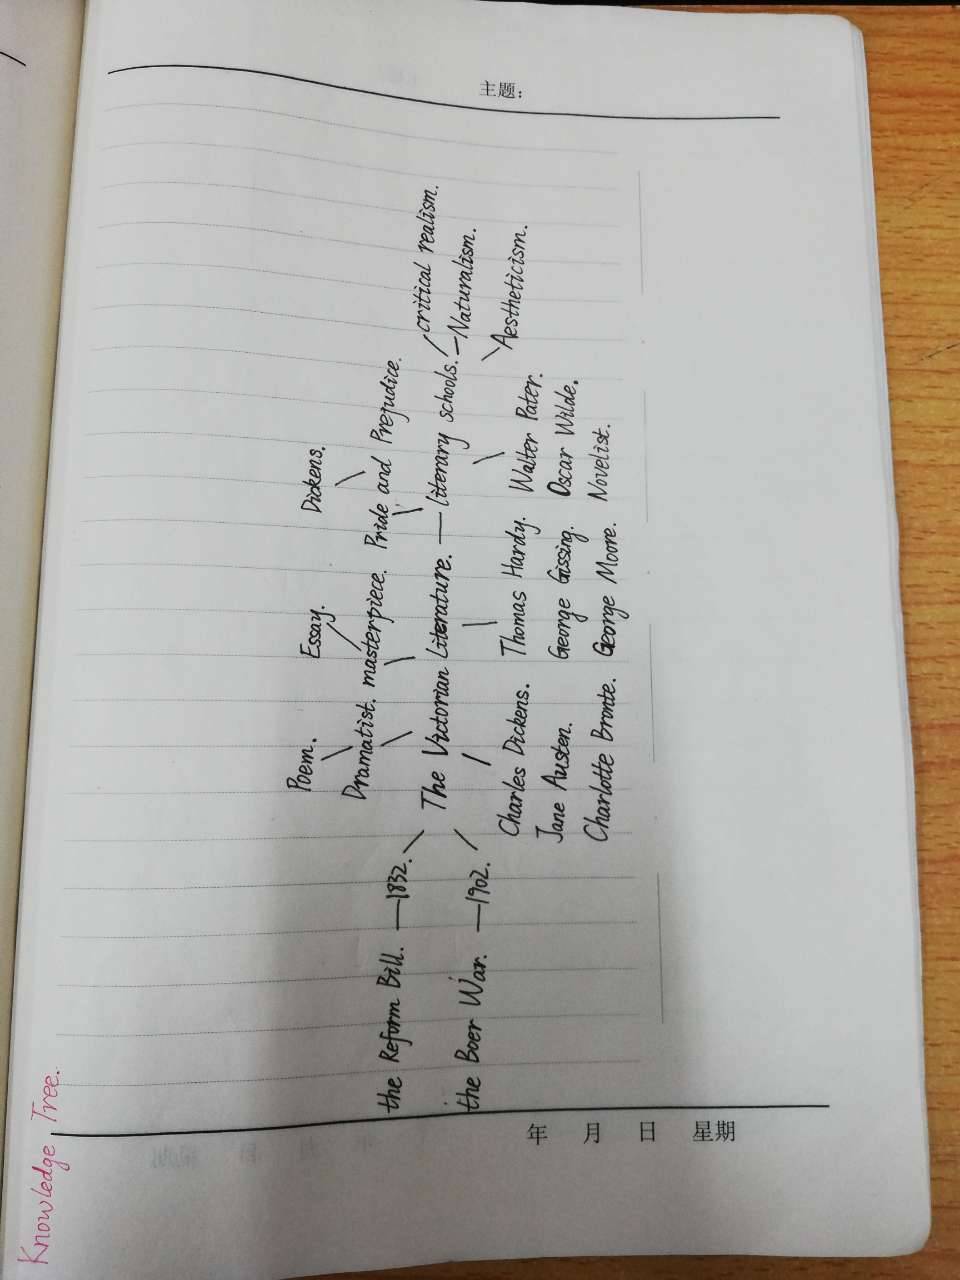 Knowledge Tree.
主题:
Poem. Essay. Dickens.
Dramatist. masterpiece. Pride and Prejudice.
the Reform Bill. —1832.
critical realism.
The Victorian Literature. — literary schools. — Naturalism.
the Boer War. —1902.
Aestheticism.
Charles Dickens. Thomas Hardy. Walter Pater.
Jane Austen. George Gissing. Oscar Wilde.
Charlotte Bronte. George Moore. Novelist.
年 月 日 星期